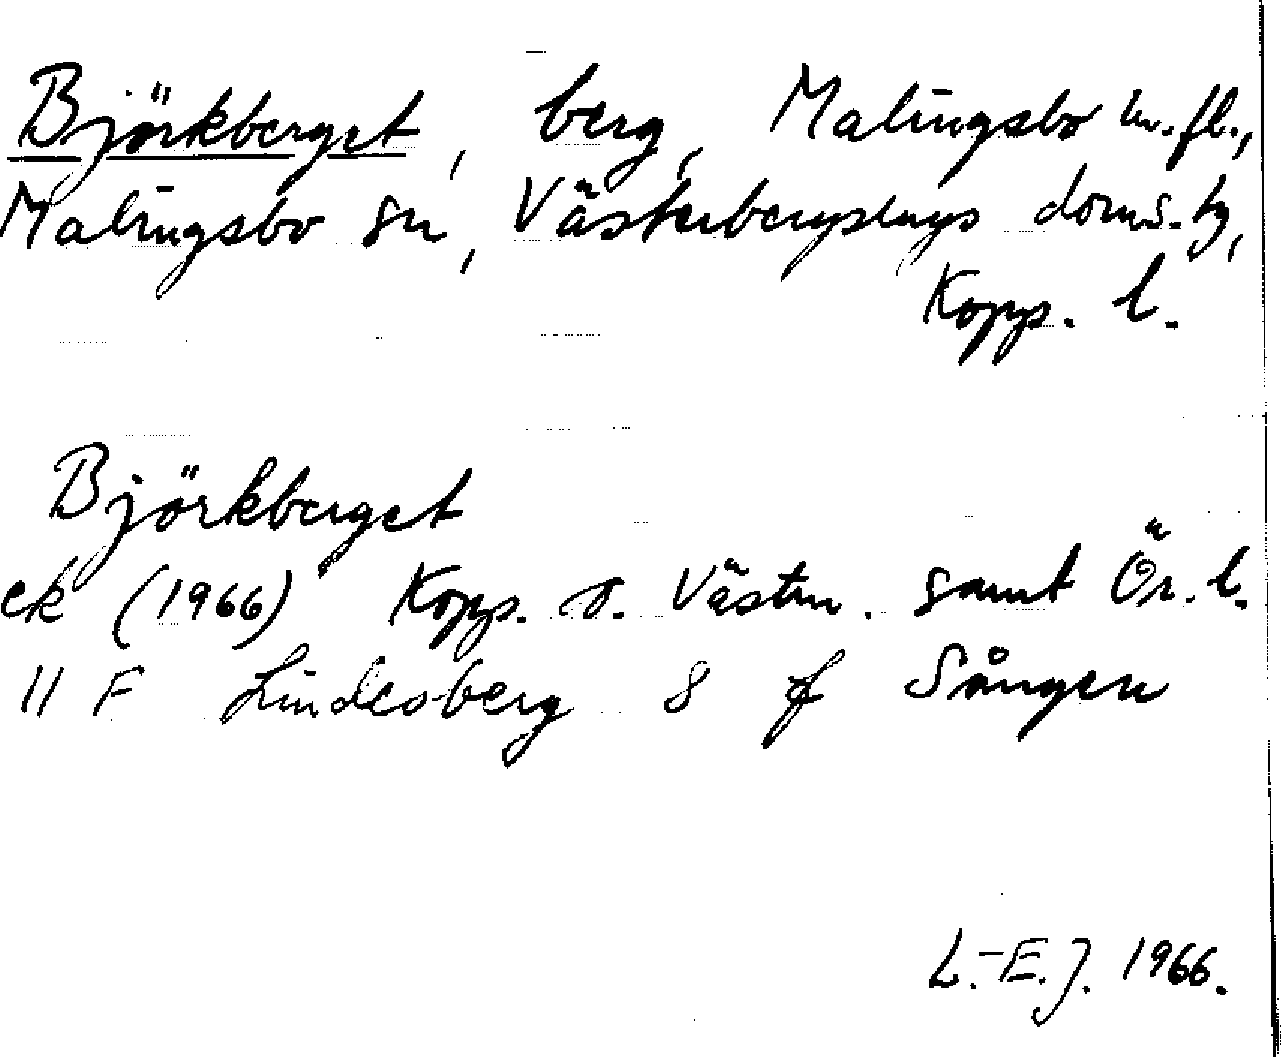 Björkberget, berg, Malingsbo kr.fl.,
Malingsbo sn, Västerbergslags doms.tg,
Kopp. l.
Björkberget
ek (1966) Kopp. o. Västm. samt Ör. l.
11 F Lindesberg 8 f Sången
L.-E.J. 1966.